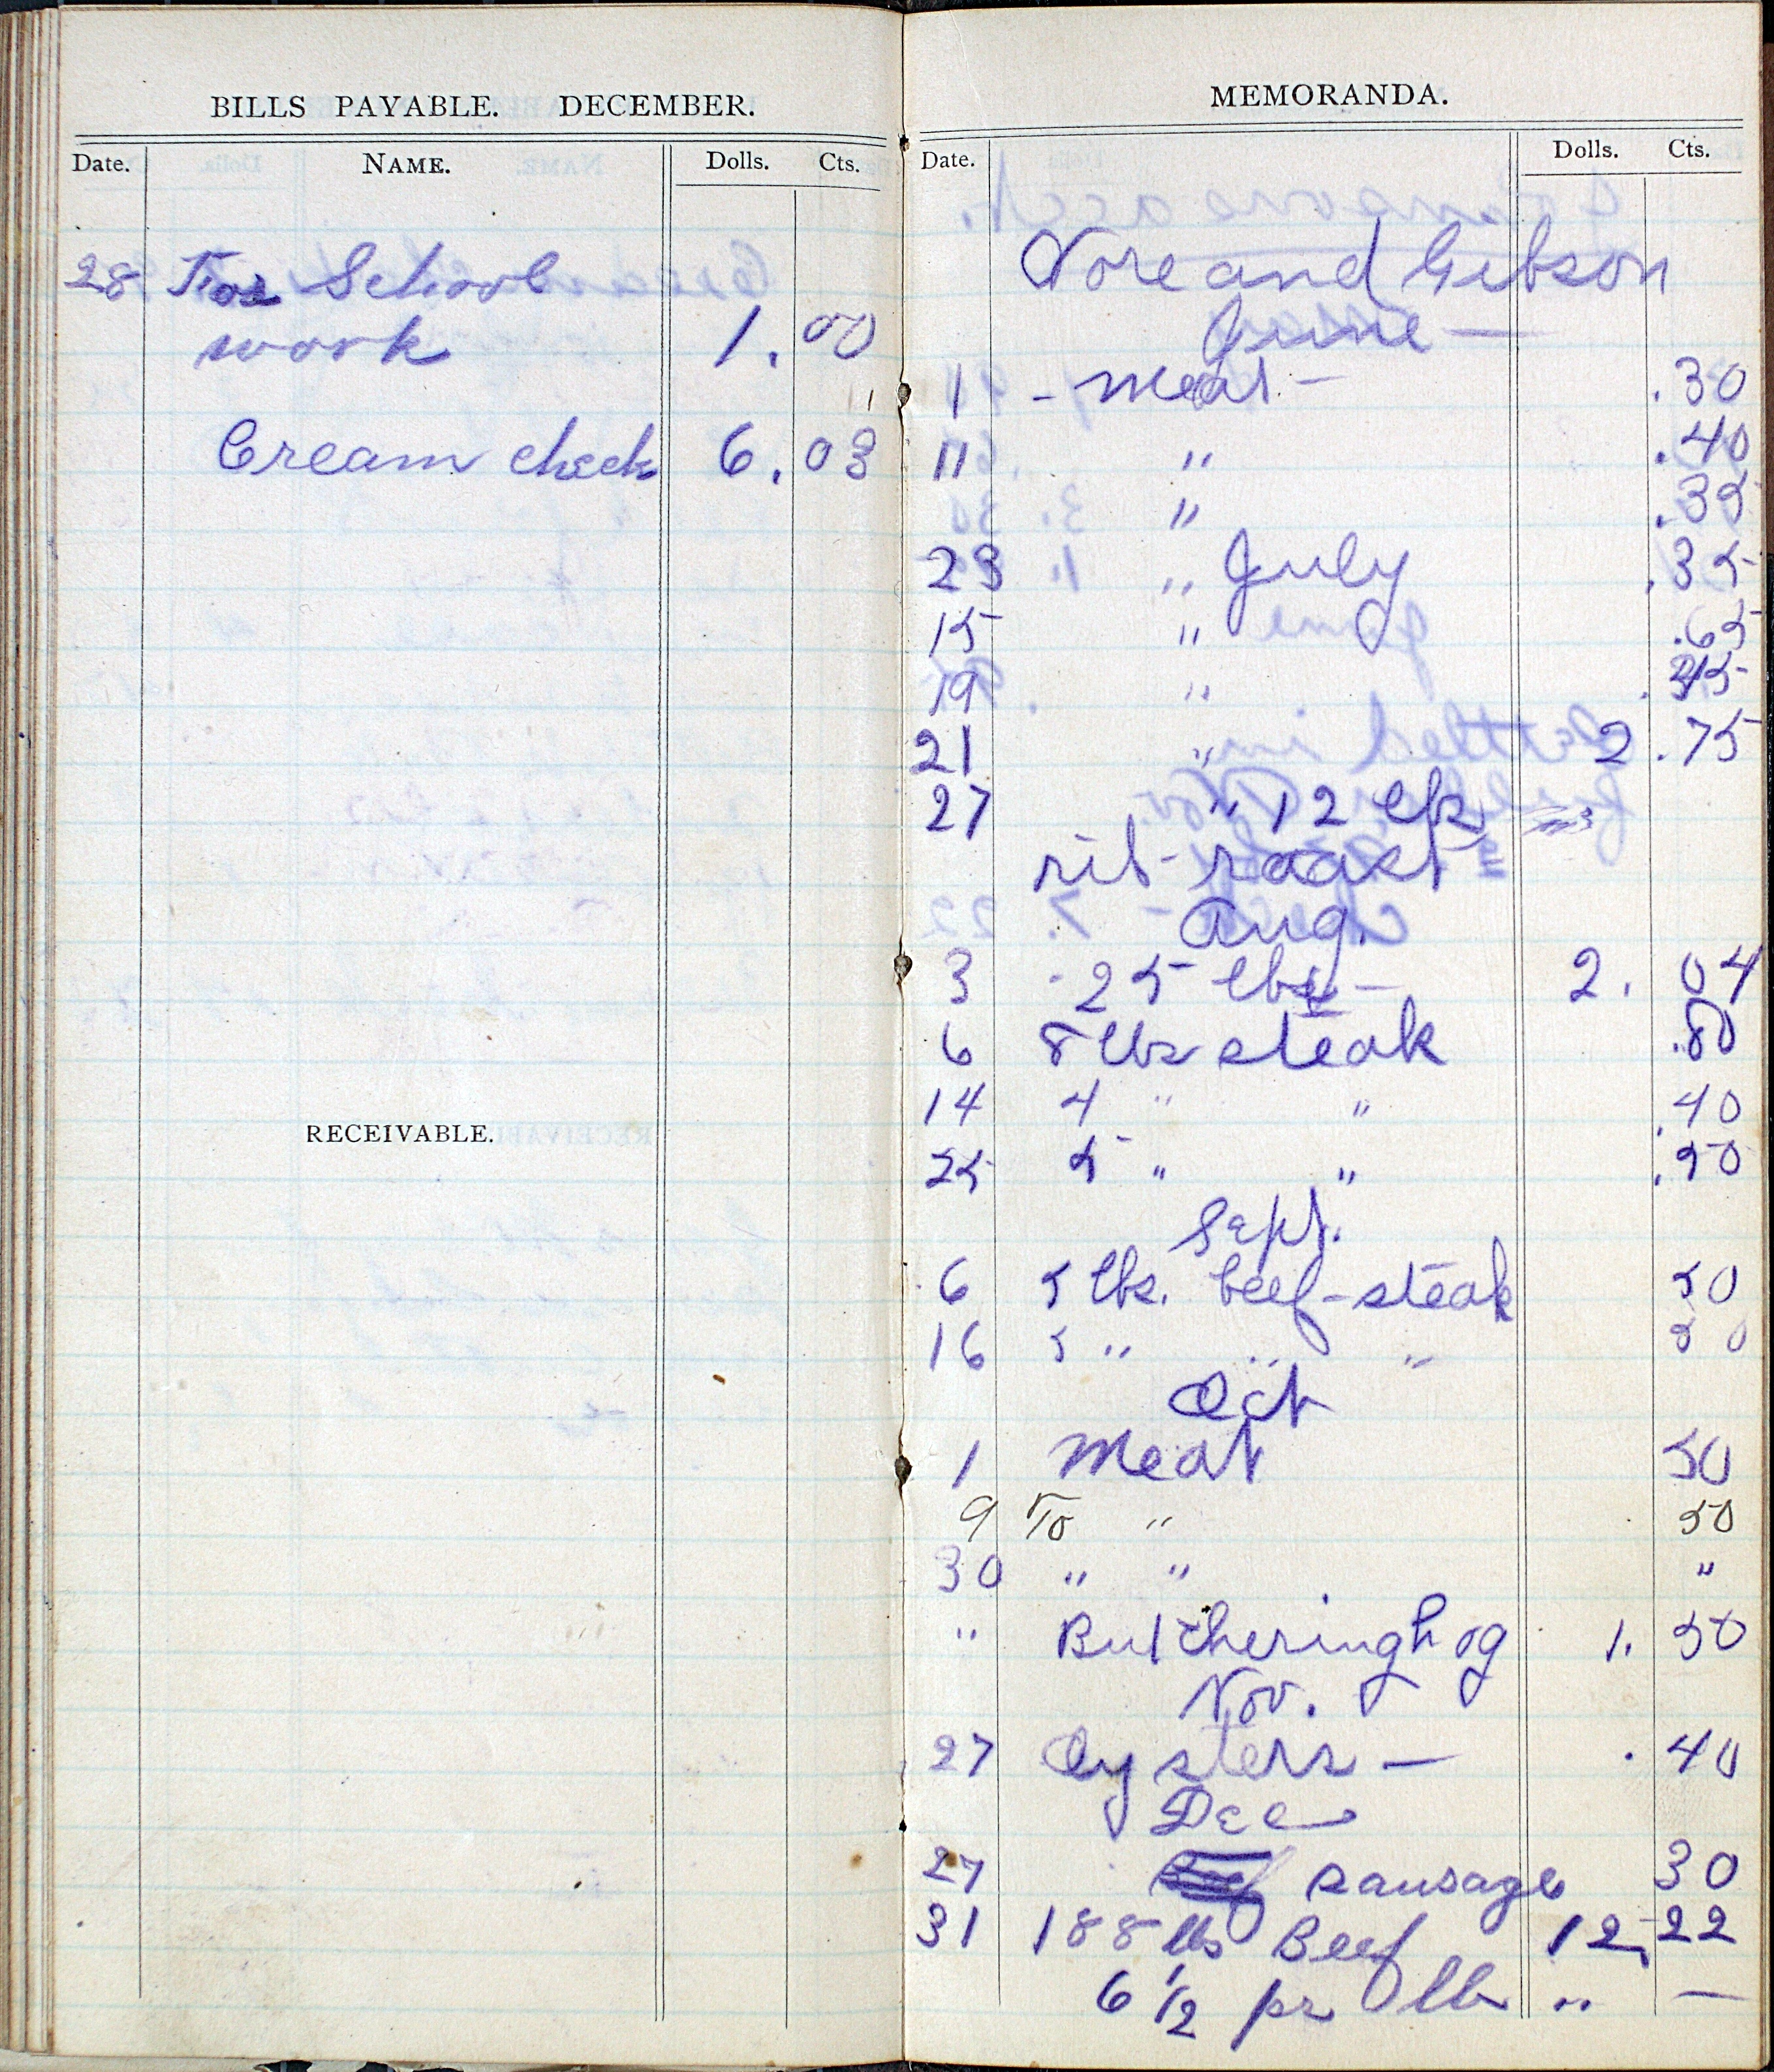 BILLS PAYABLE. DECEMBER.
Date. NAME. Dolls. Cts.
28 For School
work 1.00
Cream check 6.03
RECEIVABLE.
MEMORANDA.
Date. Dolls. Cts.
Nore and Gibson
June —
1 - meat - .30
11 " .40
" .35
23 " July .35
15 " .65
19 "
21 " 2.75
27 " 12 lbs
rib-roast
Aug.
3 - 25 lbs - 2.04
6 8 lbs steak .80
14 4 " " .40
25 5 " " .50
Sept.
6 5 lbs. beef-steak 50
16 5 " " " 50
Oct
1 Meat 50
9 To " 50
30 " " "
" Butchering hog 1.50
Nov.
27 Oysters — .40
Dec
27 Beef sausage 30
31 188 lbs Beef 12,22
6 1/2 pr lb " —